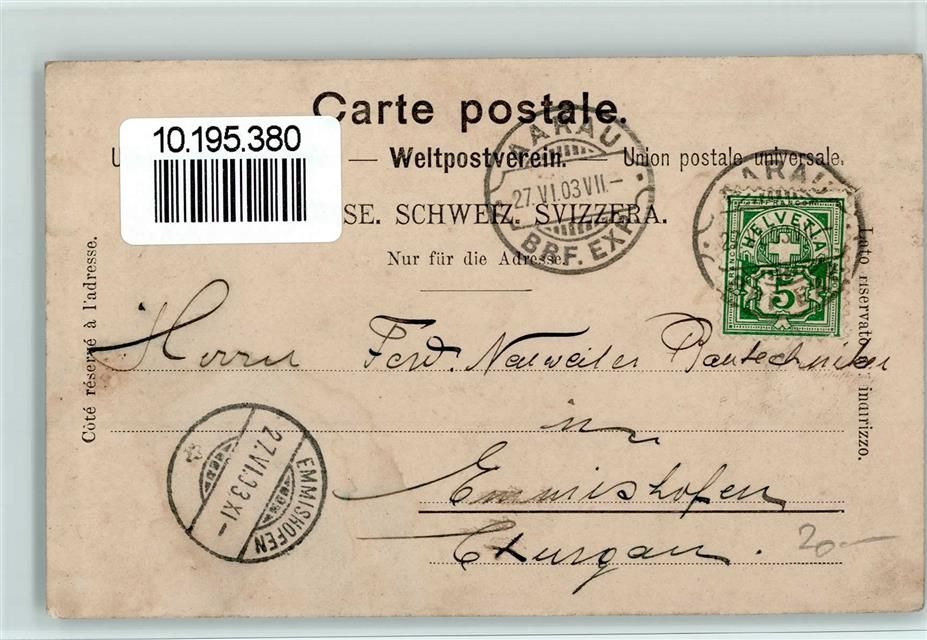 Carte postale.
10.195.380
— Weltpostverein. — Union postale universale.
SE. SCHWEIZ. SVIZZERA.
Nur für die Adresse.
AARAU
27.VI.03.VII.–
BRF. EXP.
AARAU
FRANCO
HELVETIA
5
Côté réservé à l'adresse.
Lato riservato all' indirizzo.
Herrn Ferd. Neuweiler Bautechniker
in
Emmishofen
Thurgau.
20.—
27.VI.03.XI–
EMMISHOFEN